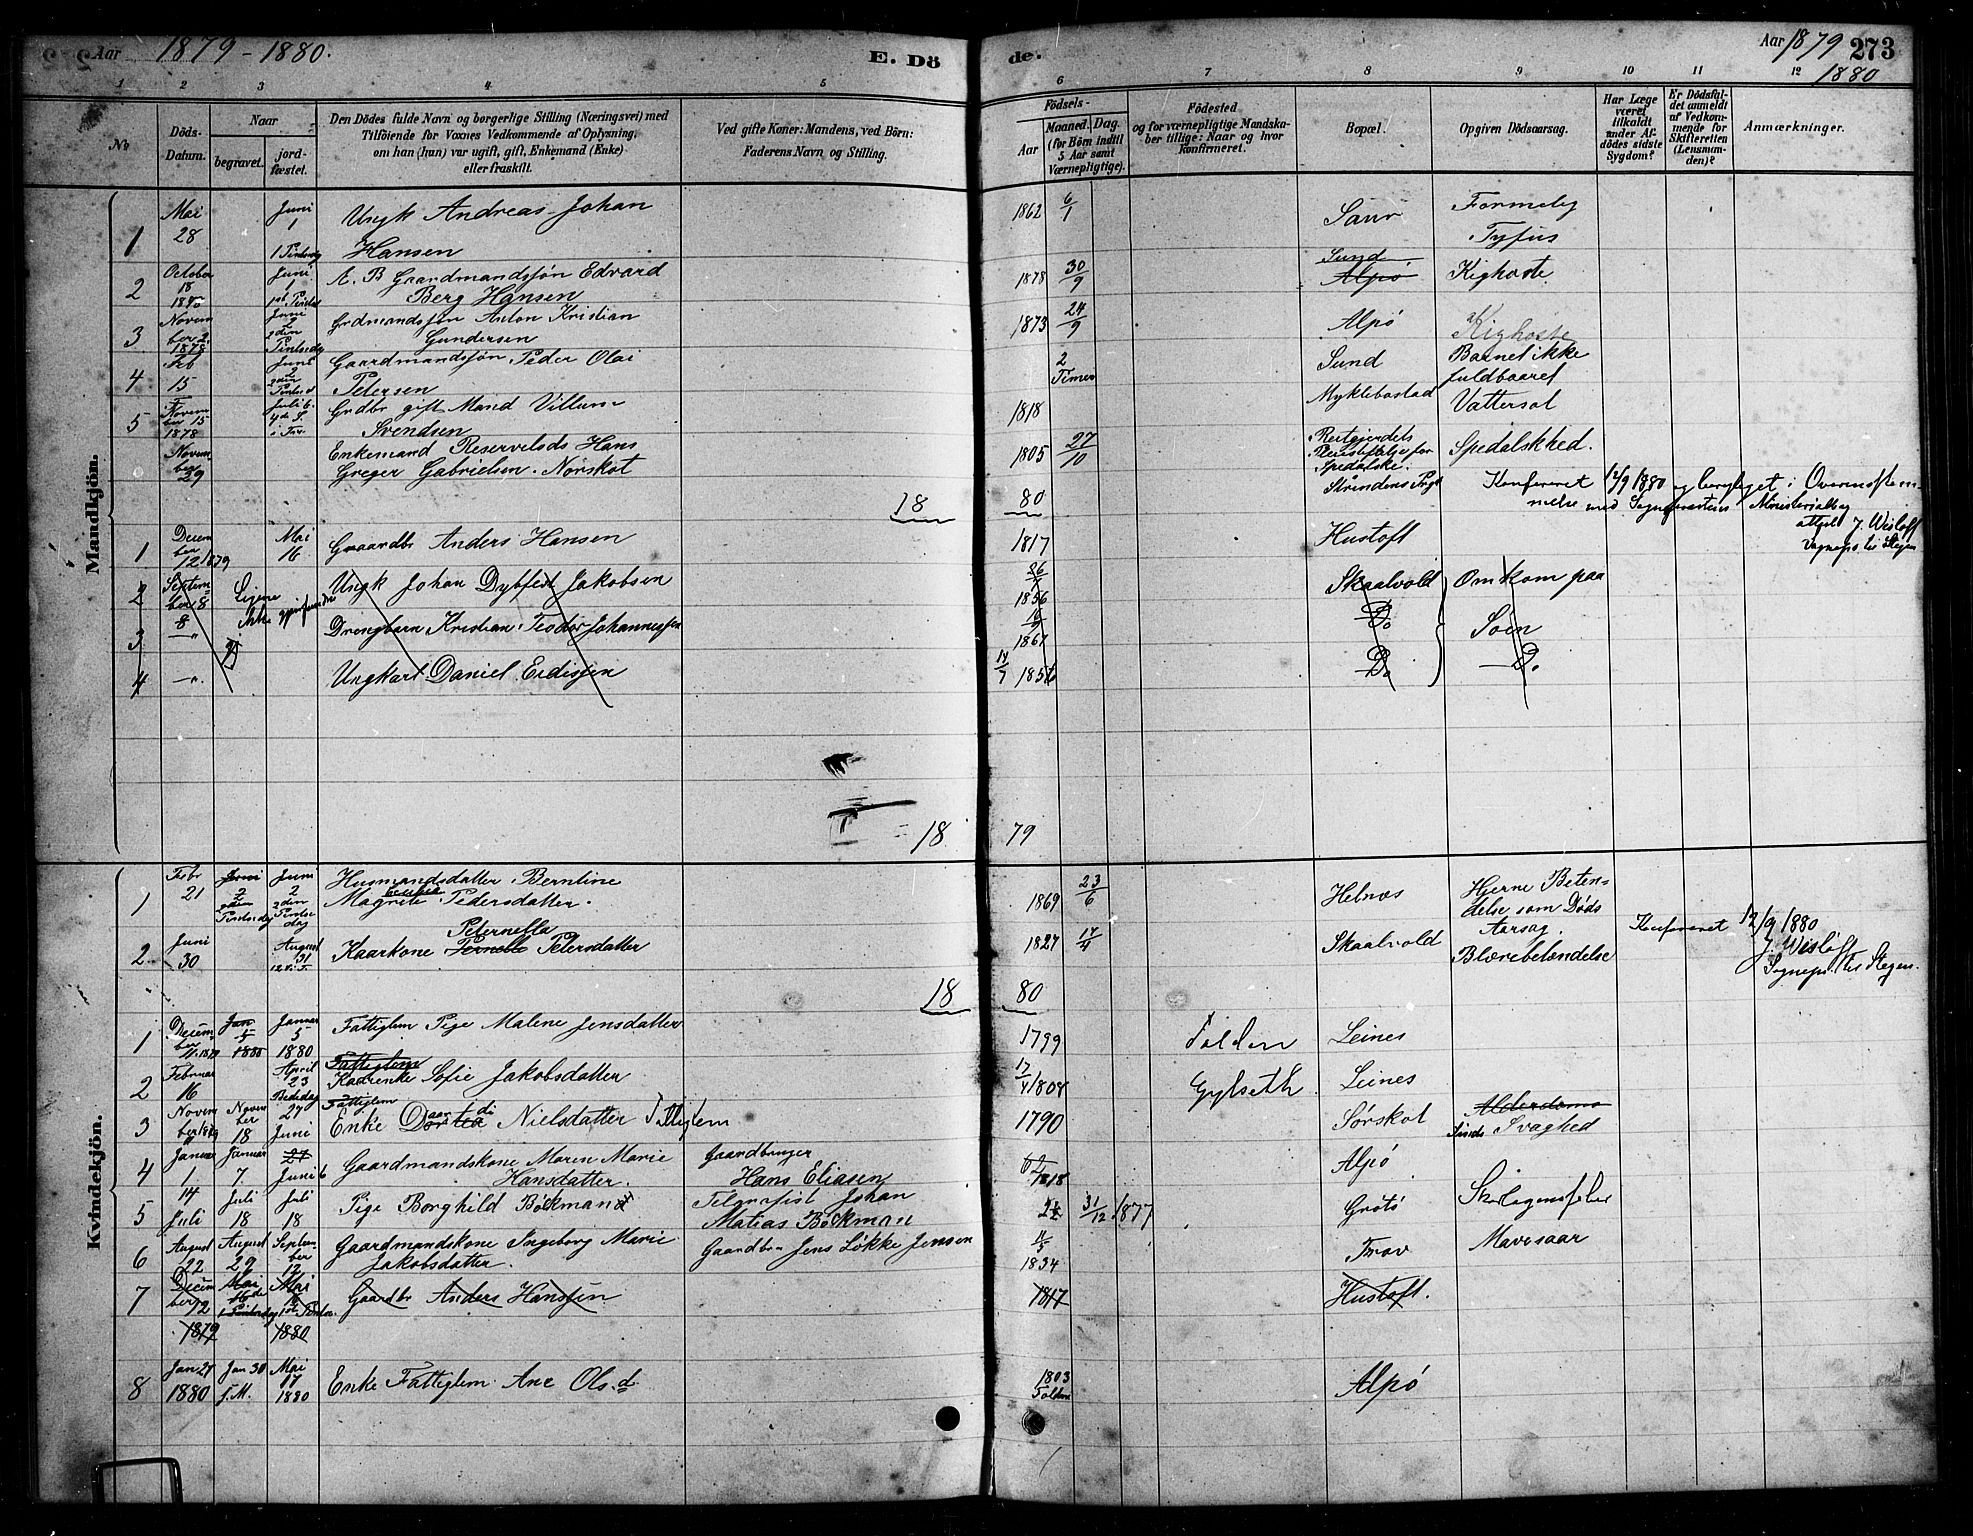 Aar 1879-1880.
E. Dö
de.
Aar 1879 273
1880
1 2 3 4 5 6 7 8 9 10 11 12
No
Döds-
Datum.
Naar
begravet.
jord-
fæstet.
Den Dödes fulde Navn og borgerlige Stilling (Næringsvei) med
Tilföiende for Voxnes Vedkommende af Oplysning,
om han (hun) var ugift, gift, Enkemand (Enke)
eller fraskilt.
Ved gifte Koner: Mandens, ved Börn:
Faderens Navn og Stilling.
Födsels-
Aar
Maaned. Dag.
(for Börn indtil
5 Aar samt
Værnepligtige).
Födested
og for værnepligtige Mandska-
ber tillige: Naar og hvor
konfirmeret.
Bopæl.
Opgiven Dödsaarsag.
Har Læge
været
tilkaldt
under Af-
dödes sidste
Sygdom?
Er Dödsfal-
det anmeldt
af Vedkom-
mende for
Skifteretten
(Lensman-
den)?
Anmærkninger.
Mandkjön.
1 Mai 28 Juni 1 Ungk Andreas Johan 1862 6/1 Formelig
1 Pintsedag Hansen Tyfus
2 October 18 Juni 1 A. B Gaardmandssön Edvard Berg Hansen 1878 30/9 Sund Alpö Kighoste
3 November 2 1878 Juni 2 2den Pintsedg Grdmandssön Anton Kristian Gundersen 1873 24/9 Alpö Kighoste
4 Feb 15 Juni 2 2den Pintsed Gaardmandssön Peder Olai Petersen 2 Timer Sund Barnet ikke fuldbaaret
5 November 15 1878 Juli 6. 4de S. i Tr. Grdbr gift Mand Villum Svendsen 1818 Myklebostad Vattersot
November 29 Enkemand Reservelsds Hans Greger Gabrielsen Nørskot 1805 27/10 Reitgjerdets Pleiestiftelse for Spedalske. Strindens Prgd Spedalskhed.
Konfereret 12/9 1880 og beroliget i Overensstem-
melse med Sogneprestens Ministerialbog
attest J. Wisløff
Sognepr. til Stegen
18 80
1 December 12 1879 Mai 16 Graardbr Anders Hansen 1817 Hustoft
2 September 8 Ligene ikke gjenfundne Ungk Johan Dybfest Jakobsen 26/7 1856 Skaalvold Omkom paa
3 8 —"— Drengbarn Kristian Teodor Johannessen 1867 Do Søen
4 —"— Ungkarl Daniel Erdissen 14/7 1856 Do —Do
18 79
Kvindekjön.
1 Febr 21 Juni 2 2den Pintsedag Juni 2 2den Pintsedag Husmandsdatter Berntine Magrete Pedersdatter. 1869 23/6 Helnes Hjerne Betendelse som Døds Aarsag.
2 Juni 30 August 31 12 S. T. Kaarkone Pernelle Peternella Petersdatter 1827 17/4 Skaalvold Blærebetændelse
Konfereret 12/9 1880
J. Wisløff
Sognepr. til Stegen.
18 80
1 December 11. 1879 Jan 5 1880 Januar 5 1880 Fattiglem Pige Malene Jensdatter 1799 Folden Leines
2 Februar 16 April 23 Bededag Fattiglem Kaarenke Sofie Jakobsdatter 17/4 1808 Gylseth Leines
3 November 1879 November 18 27 Juni Fattiglem Enke Dortea Nielsdatter Fattiglem 1790 Sørskot Alderdoms Svaghed
4 Januar 1 Januar 7. 27 Juni 6 Gaardmandskone Maren Marie Hansdatter. Gaardbruger Hans Eliasen 1818 Alpö
5 14 Juli Juli 18 Juli 18 Pige Borghild Böckmand Telegrafist Johan Matias Böckman 31/12 1877 Grötö Skarlagensfeber
6 August 22 August 29 September 12 Gaardmandskone Ingeborg Marie Jakobsdatter. Gaardbr. Jens Løkke Jensen 1834 Trøv Mavesaar
7 December 12 1879 Mai 16de 1 Pintsedag Mai 16 1ste Pintse. 1880 Gaardbr Anders Hanssen 1817 Hustoft.
8 Jan 27 1880 Jan 30 f.M. Mai 17 1880 Enke Fattiglem Ane Ols.d. 1803 Folden Alpö